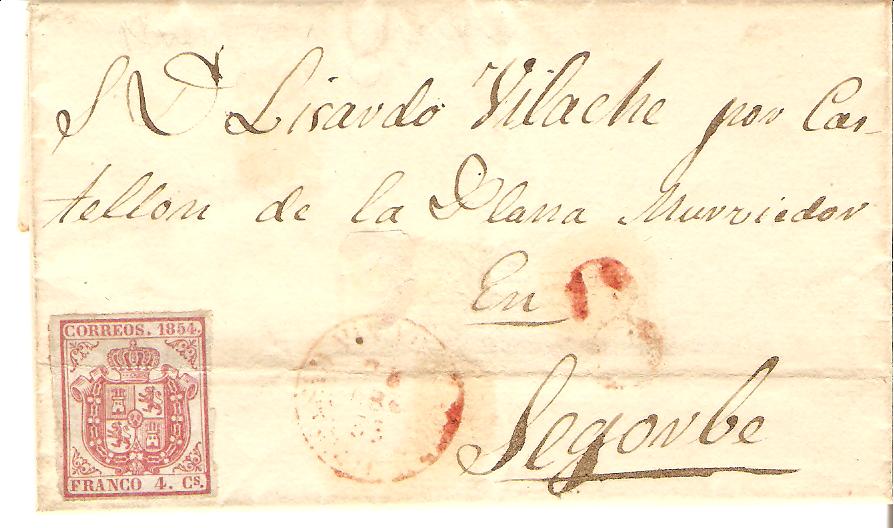 S D Lisardo Vilache por Cas-
tellon de la Plana Murviedor
En
Segorbe
CORREOS. 1854.
FRANCO 4. Cs.